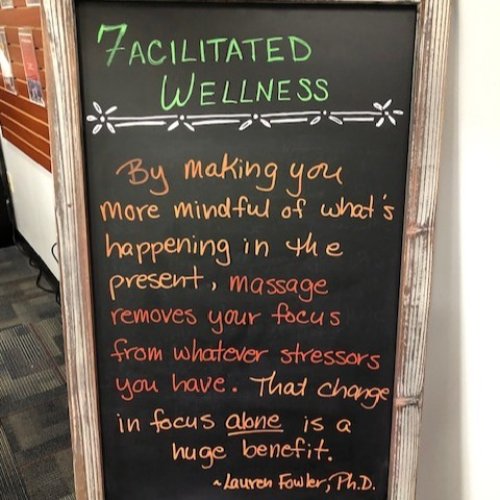 FACILITATED
WELLNESS
By making you
more mindful of what's
happening in the
present, massage
removes your focus
from whatever stressors
you have. That change
in focus alone is a
huge benefit.
~Lauren Fowler, Ph.D.